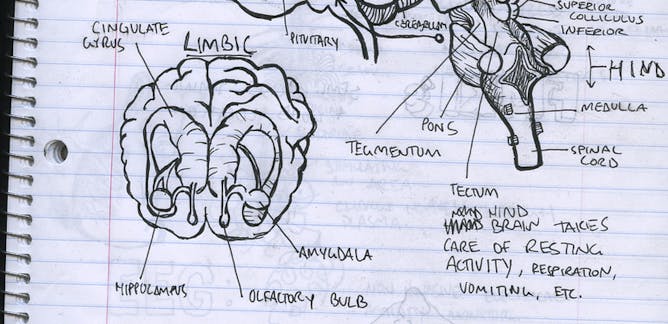 CINGULATE
GYRUS
LIMBIC
PITUITARY
CEREBELLUM
SUPERIOR
COLLICULUS
INFERIOR
HIND
MEDULLA
PONS
TEGMENTUM
SPINAL
CORD
TECTUM
HIND
BRAIN TAKES
CARE OF RESTING
ACTIVITY, RESPIRATION,
VOMITING, ETC.
AMYGDALA
HIPPOCAMPUS
OLFACTORY BULB